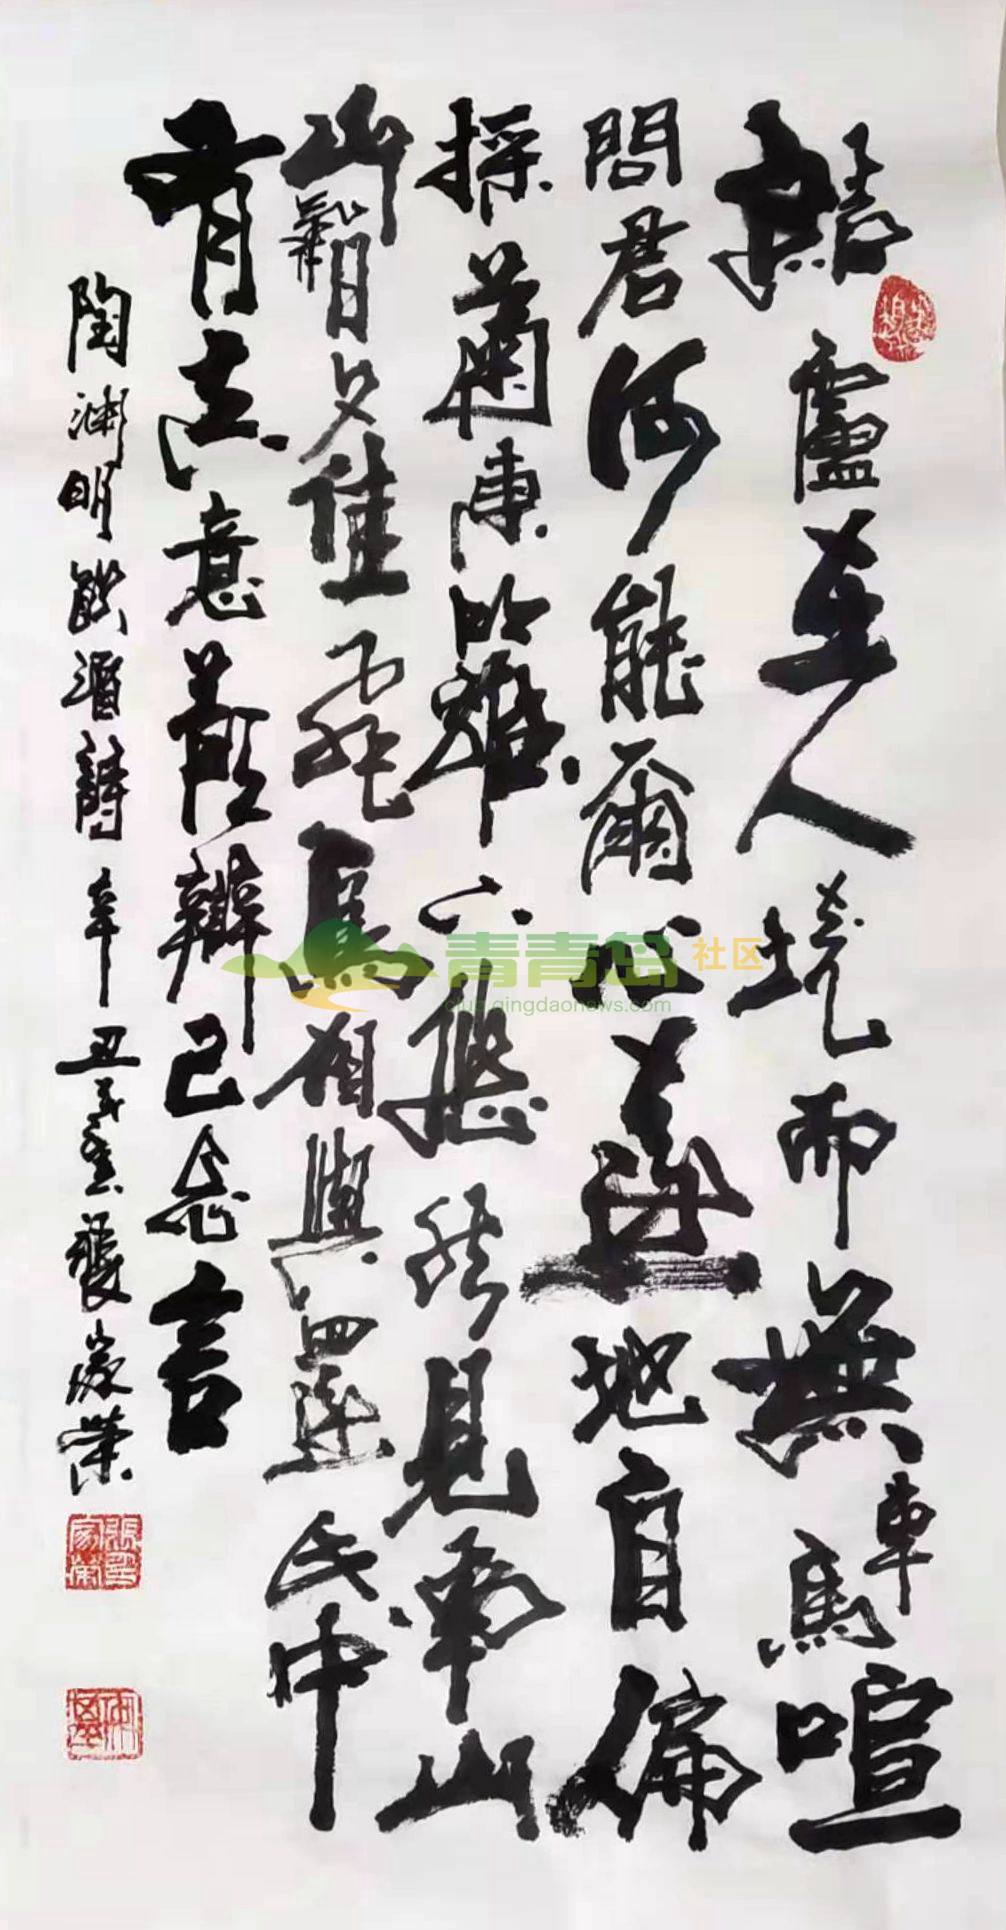 結廬在人境而無車馬喧
問君何能爾心遠地自偏
採菊東籬下悠然見南山
山氣日夕佳飛鳥相與還此中
有真意欲辯已忘言
陶淵明飲酒詩辛丑張家榮
張家榮印
青青岛社区
club.qingdaonews.com